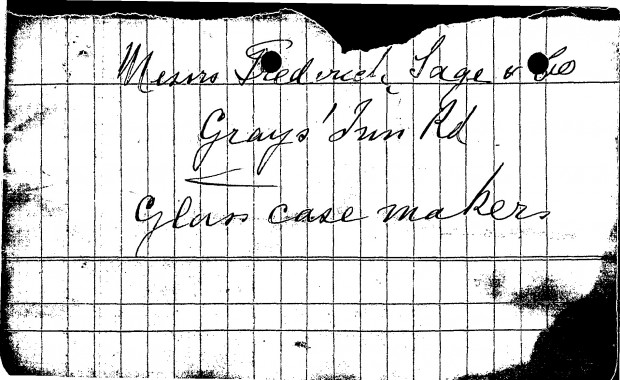 Messrs Frederick Sage & Co
Grays' Inn Rd
Glass case makers